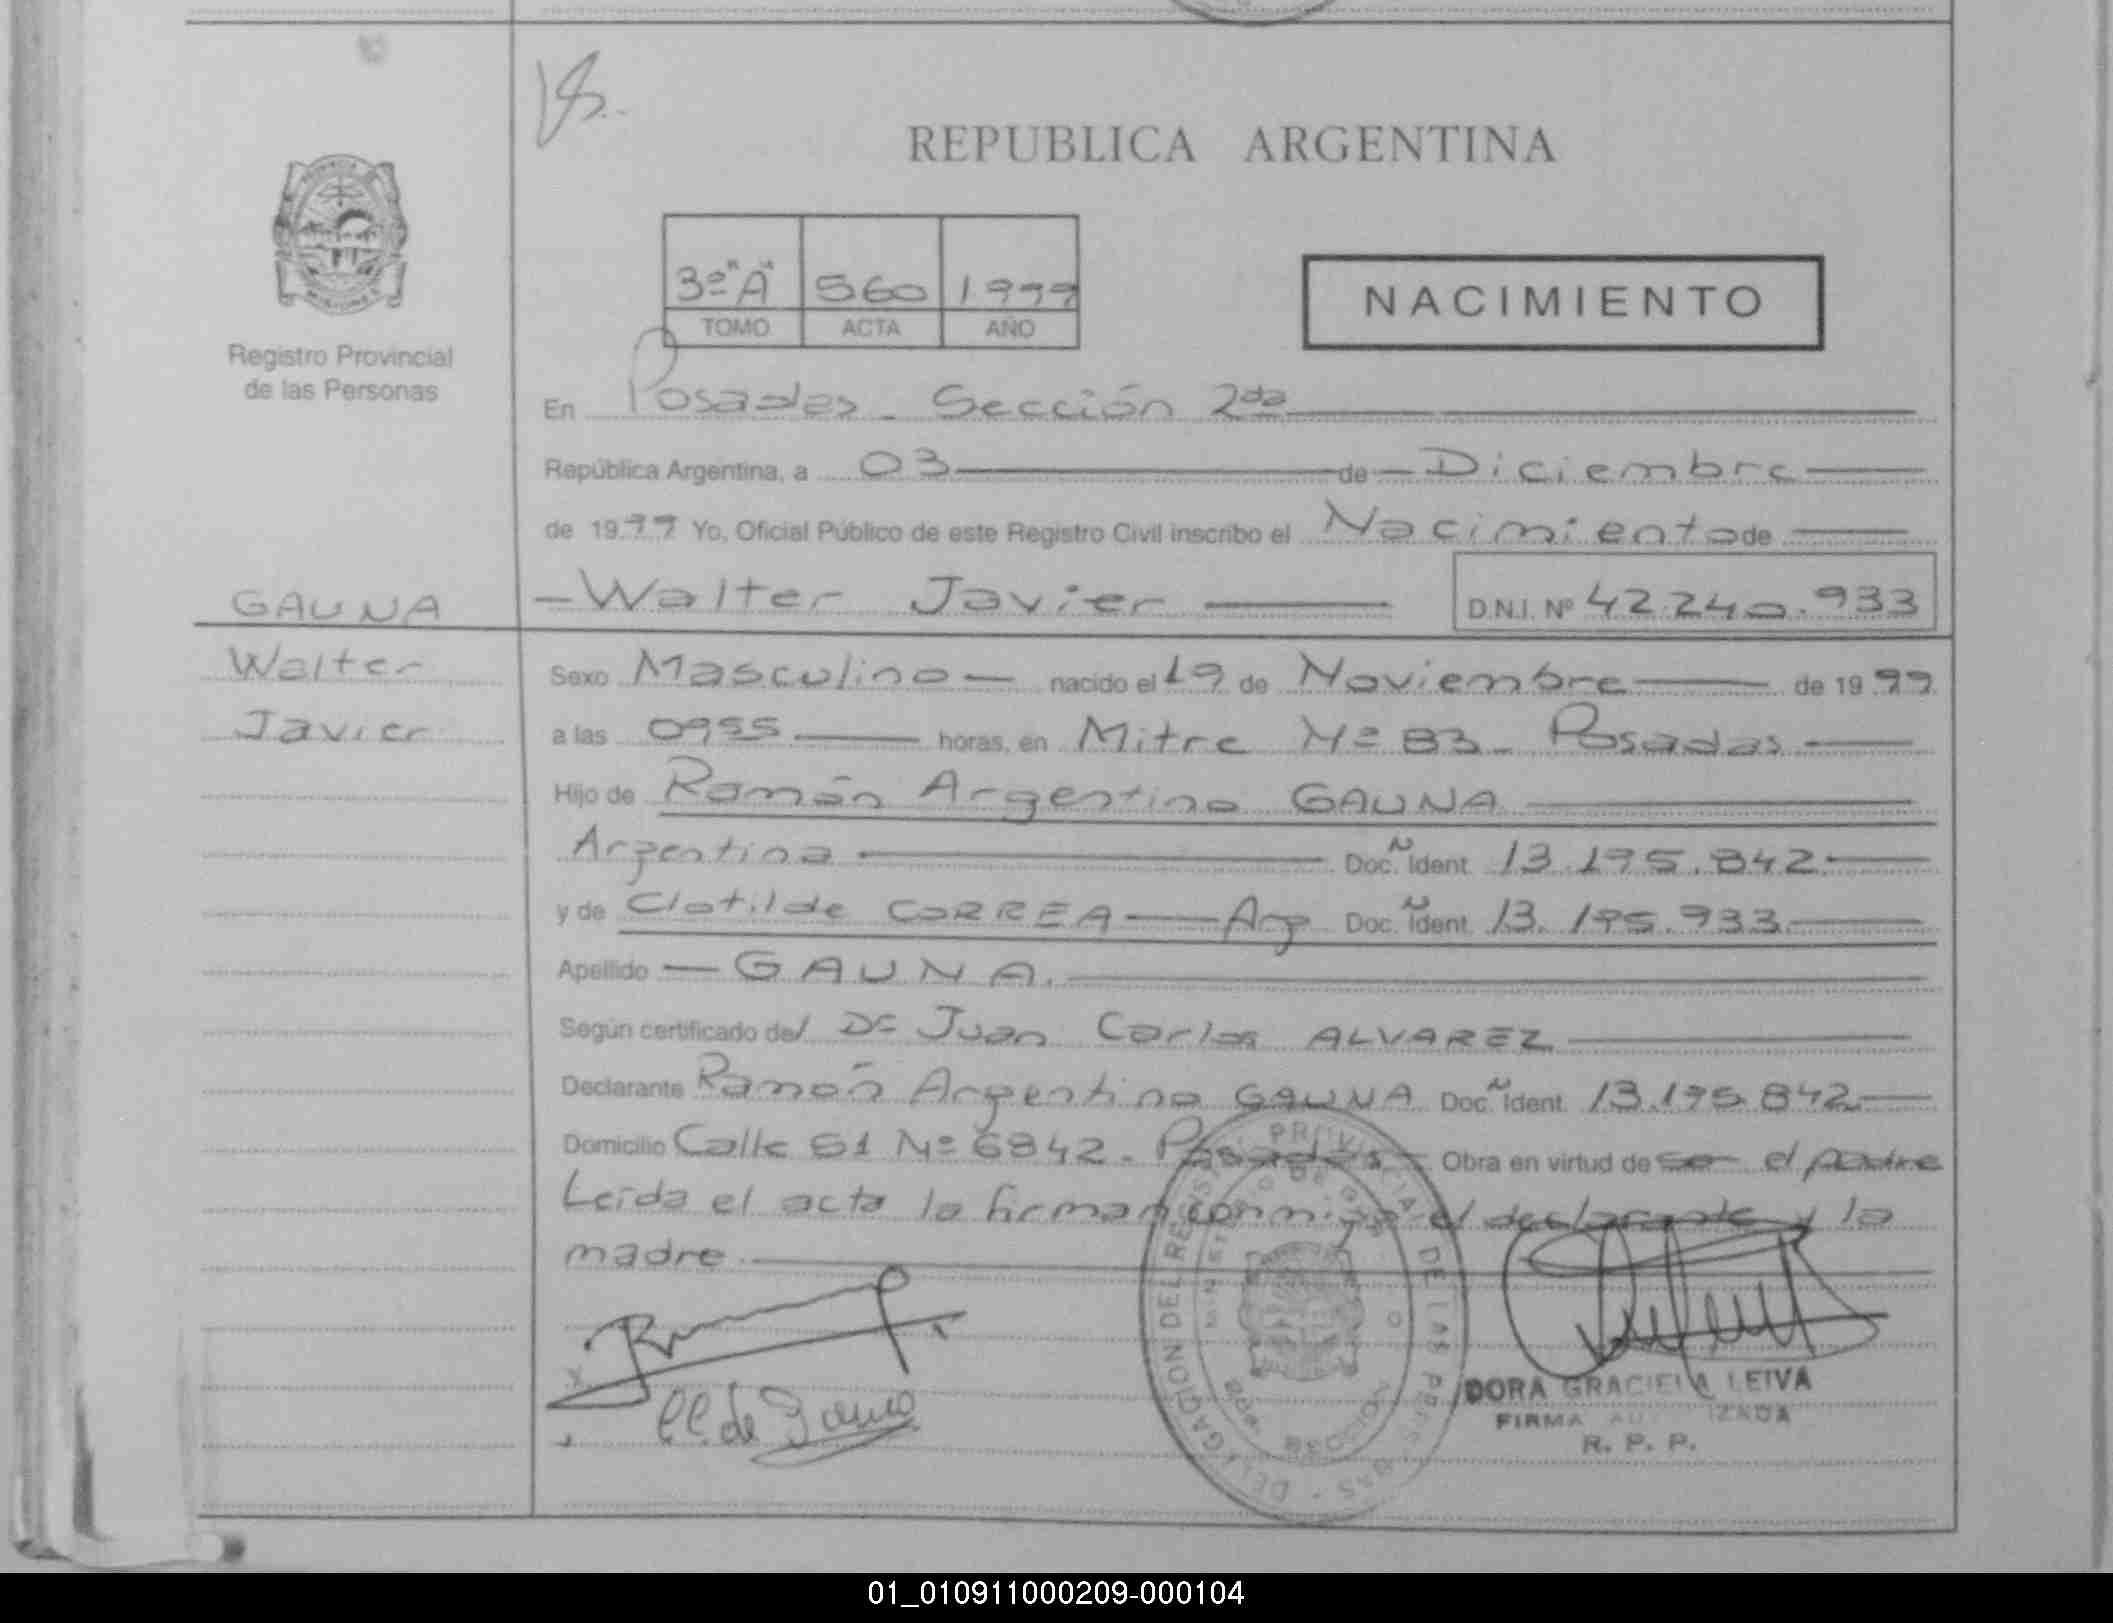 REPUBLICA ARGENTINA
3º "A" 560 1999
TOMO ACTA AÑO
NACIMIENTO
Registro Provincial
de las Personas
En Posadas - Sección 2da
República Argentina, a 03 de Diciembre
de 1999 Yo, Oficial Público de este Registro Civil inscribo el Nacimiento de
GAUNA
Walter
Javier
Walter Javier D.N.I. Nº 42.240.933
Sexo Masculino nacido el 19 de Noviembre de 1999
a las 0955 horas, en Mitre Nº 83 - Posadas
Hijo de Ramón Argentino GAUNA
Argentina Doc. Ident. 13.195.842
y de Clotilde CORREA Arg Doc. Ident. 13.195.933
Apellido GAUNA.
Según certificado del Dr Juan Carlos ALVAREZ
Declarante Ramón Argentino GAUNA Doc. Ident. 13.195.842
Domicilio Calle 51 Nº 6842 - Posadas Obra en virtud de ser el padre
Leída el acta la firman conmigo el declarante y la
madre
C.C. de Gauna
DELEGACION DEL REGIST. PROVINCIAL DE LAS PERS
MINISTERIO DE GO
DORA GRACIELA LEIVA
FIRMA AU IZADA
R. P. P.
01_010911000209-000104